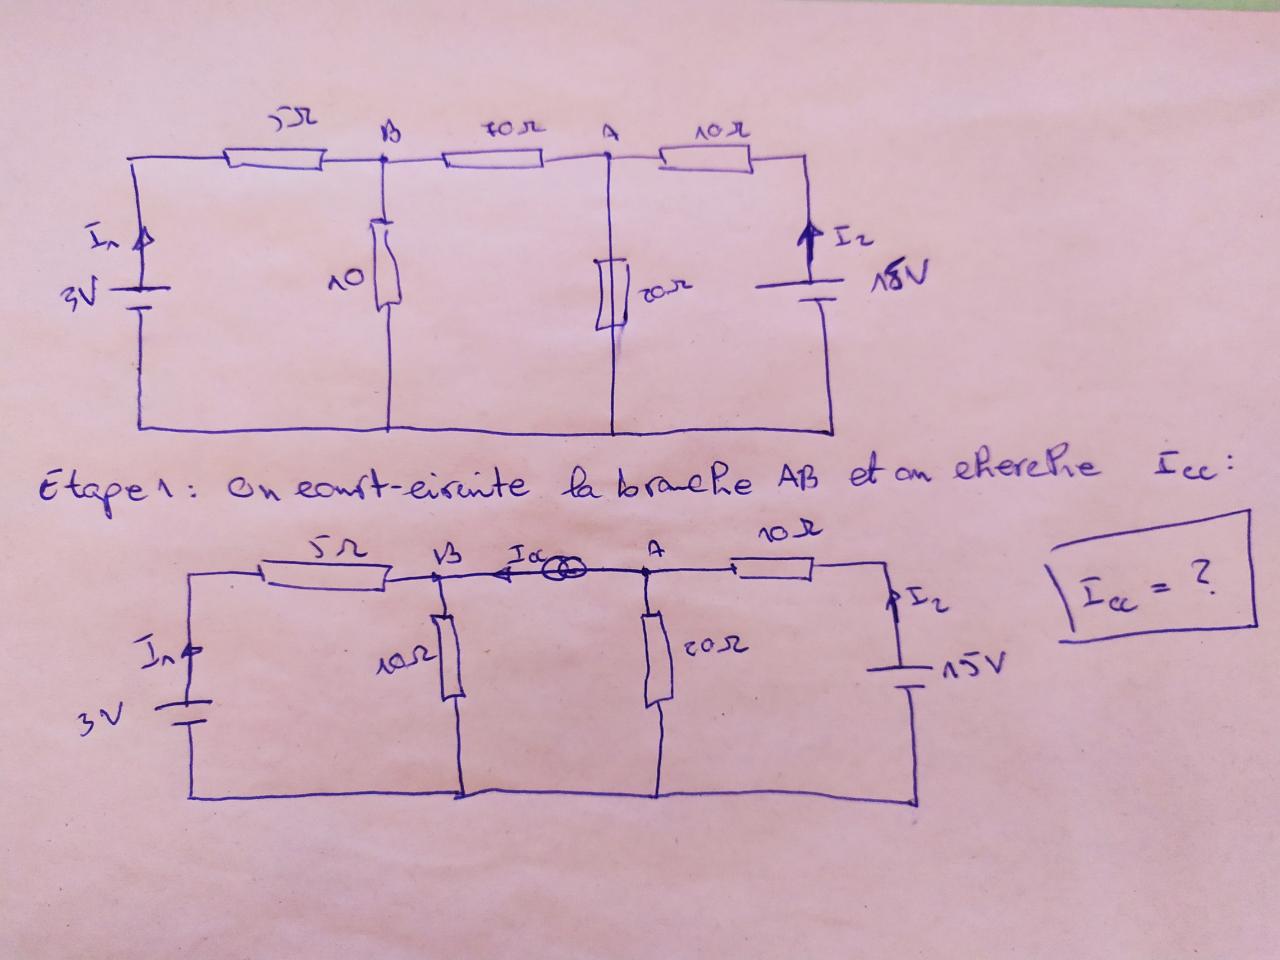 5Ω B 10Ω A 10Ω
I₁ I₂
3V 10 20Ω 15V
Etape 1 : on court-circuite la branche AB et on cherche Icc :
5Ω B Icc A 10Ω
I₁ 10Ω 20Ω I₂ Icc = ?
3V 15V